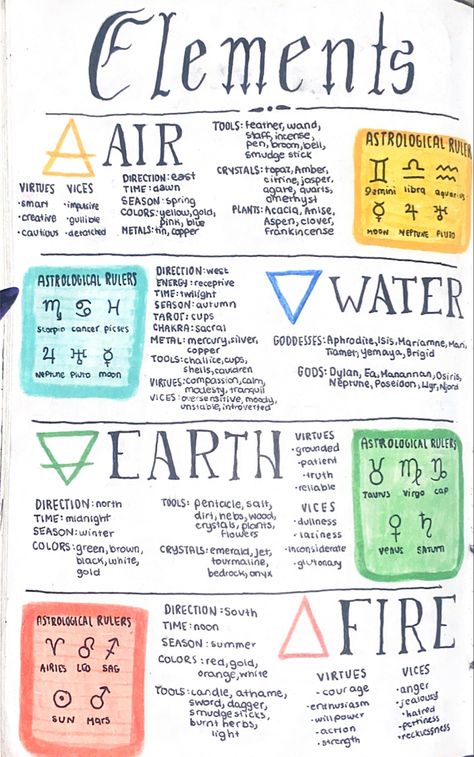 Elements
AIR
VIRTUES
-smart
-creative
-cautious
VICES
-impulsive
-gullible
-detatched
DIRECTION: east
TIME: dawn
SEASON: spring
COLORS: yellow, gold,
pink, blue
METALS: tin, copper
TOOLS: feather, wand,
staff, incense,
pen, broom, bell,
smudge stick
CRYSTALS: topaz, Amber,
citrine, jasper,
agate, quartz,
amethyst
PLANTS: Acacia, Anise,
Aspen, clover,
Frankincense
ASTROLOGICAL RULERS
♊ ♎ ♒
Gemini libra aquarius
☿ ♃ ♅
MOON NEPTUNE PLUTO
ASTROLOGICAL RULERS
♏ ♋ ♓
Scorpio cancer pisces
♃ ♅ ☿
Neptune Pluto moon
DIRECTION: west
ENERGY: receptive
TIME: twilight
SEASON: autumn
TAROT: cups
CHAKRA: sacral
METAL: mercury, silver,
copper
TOOLS: challice, cups,
shells, cauldren
VIRTUES: compassion, calm,
modesty, tranquil
VICES: oversensitive, moody,
unstable, introverted
WATER
GODDESSES: Aphrodite, Isis, Mariamne, Mari,
Tiamet, Yemaya, Brigid
GODS: Dylan, Ea, Manannan, Osiris,
Neptune, Poseidon, Njord
EARTH
DIRECTION: north
TIME: midnight
SEASON: winter
COLORS: green, brown,
black, white,
gold
TOOLS: pentacle, salt,
dirt, herbs, wood,
crystals, plants,
flowers
CRYSTALS: emerald, jet,
tourmaline,
bedrock, onyx
VIRTUES
-grounded
-patient
-truth
-reliable
VICES
-dullness
-laziness
-inconsiderate
-glutonary
ASTROLOGICAL RULERS
♉ ♍ ♑
Taurus Virgo cap
♀ ♄
Venus SATURN
ASTROLOGICAL RULERS
♈ ♌ ♐
AIRIES LEO SAG
☉ ♂
SUN Mars
DIRECTION: South
TIME: noon
SEASON: summer
COLORS: red, gold,
orange, white
TOOLS: candle, athame,
sword, dagger,
smudge sticks,
burnt herbs,
light
FIRE
VIRTUES
-courage
-enthusiasm
-willpower
-action
-strength
VICES
-anger
-jealousy
-hatred
-pettiness
-recklessness